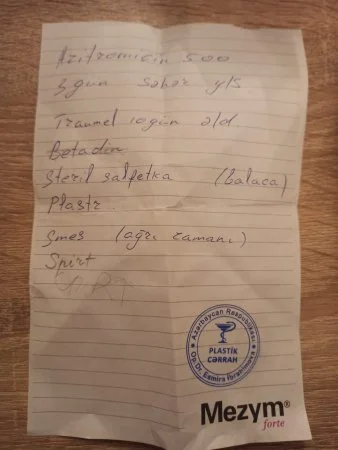 Azitromicin 500
3 gün səhər y/s
Traumel 10gün ə/d
Betadin
Steril salfetka (balaca)
Plastr
Smes (ağrı zamanı)
Spirt
Azərbaycan Respublikası
PLASTİK
CƏRRAH
Op. Dr. Esmira İbrahimova
Mezym®
forte